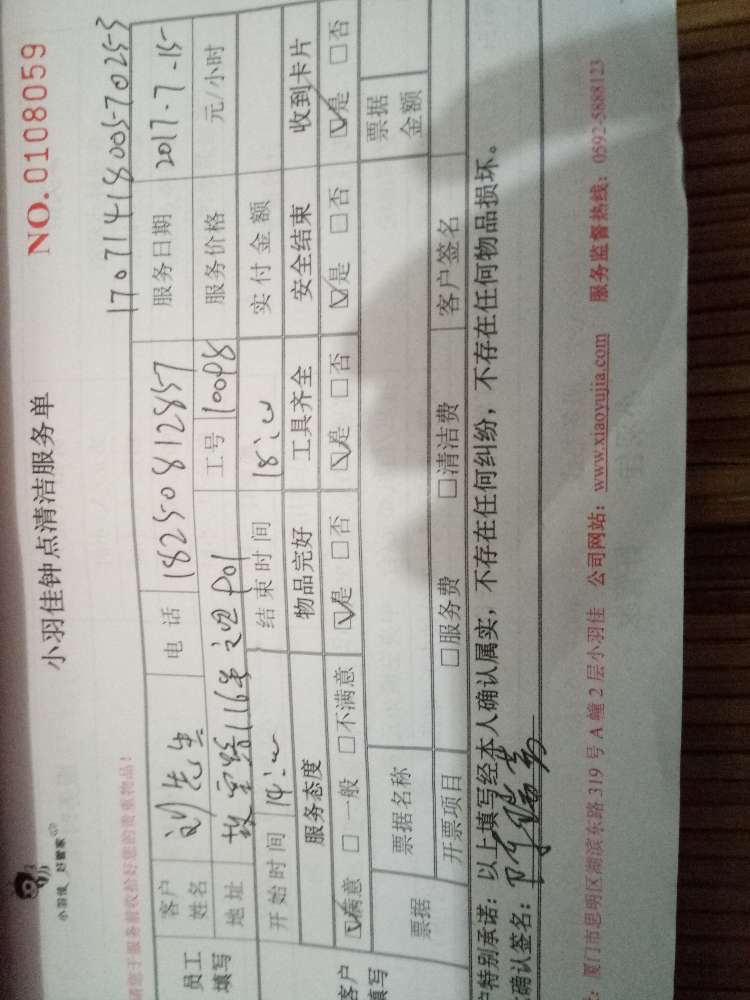 小羽佳 好管家
小羽佳钟点清洁服务单
NO.0108059
请您于服务前收拾好您的贵重物品!
17071418005702S-3
员工填写
客户姓名 刘先生 电话 18250812857 服务日期 2017-7-15
地址 116号之四 工号 10098 服务价格 元/小时
开始时间 14:00 结束时间 18:00 实付金额
客户填写
服务态度 物品完好 工具齐全 安全结束 收到卡片
☑满意 □一般 □不满意 ☑是 □否 ☑是 □否 ☑是 □否 ☑是 □否
票据 票据名称 票据金额
开票项目 □服务费 □清洁费 客户签名
户特别承诺:以上填写经本人确认属实,不存在任何纠纷,不存在任何物品损坏。
确认签名:
:厦门市思明区湖滨东路 319 号 A 幢 2 层小羽佳 公司网站:www.xiaoyujia.com 服务监督热线:0592-5888123